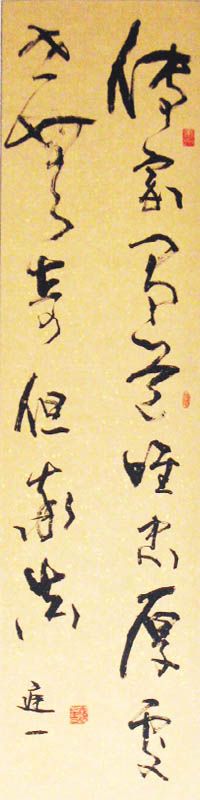 傳家有道唯忠厚處
世無奇但率真